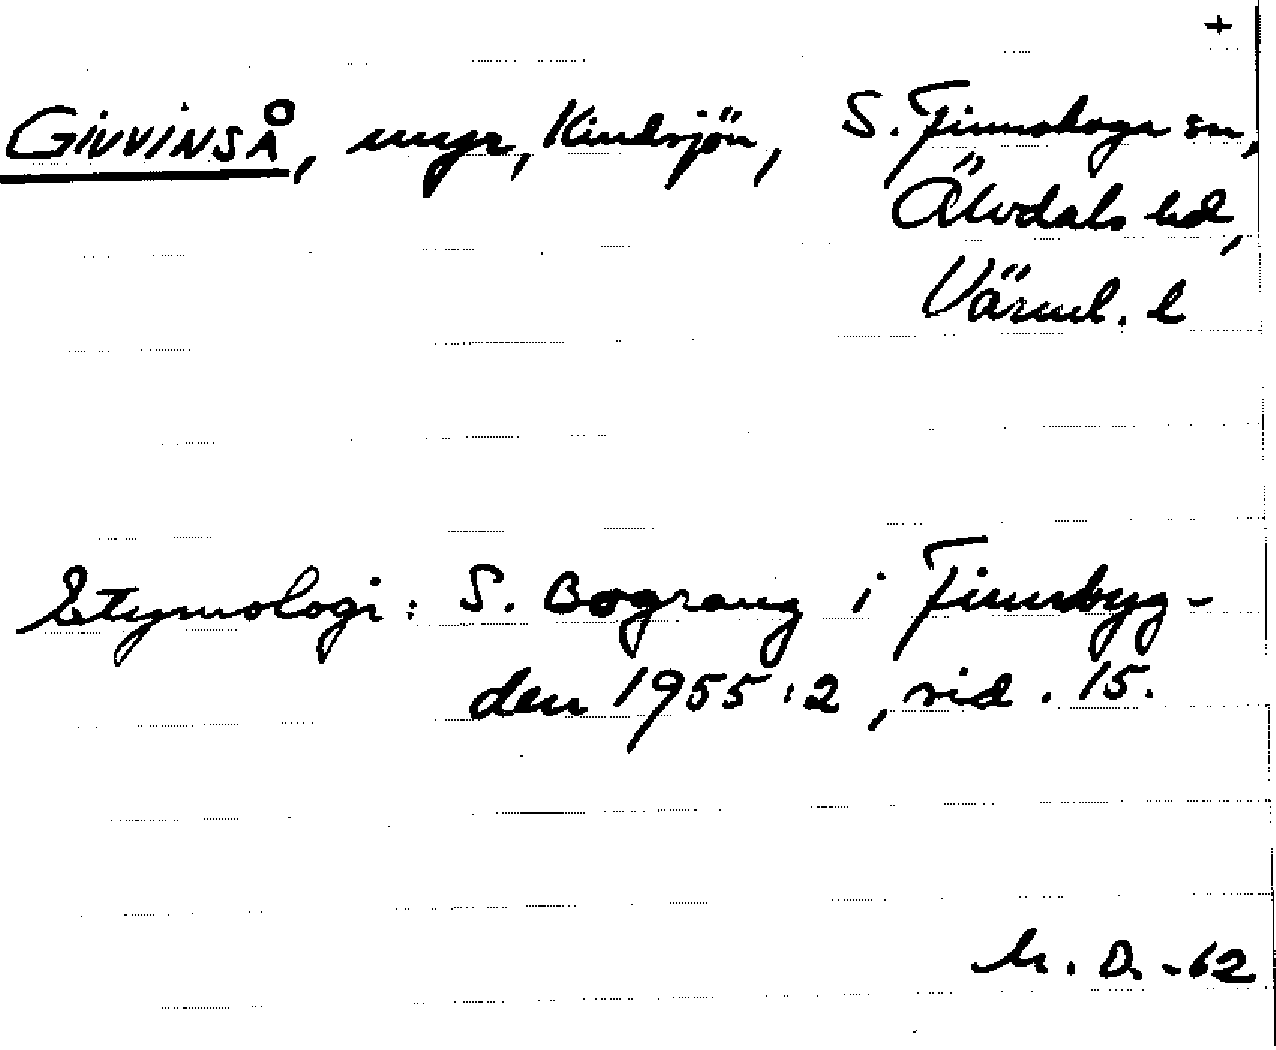 +
GIVVINSÅ, myr, Kindsjön, S. Finnskoga sn,
Älvdals hd,
Värml. l
Etymologi: S. Bograng i Finnbyg-
den 1955:2, sid. 15.
M. D. -62